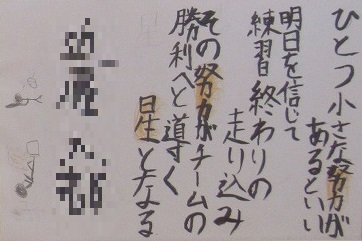 ひとつ小さな努力が
あるといい
明日を信じて
練習終わりの
走り込み
その努力がチームの
勝利へと導く
星となる